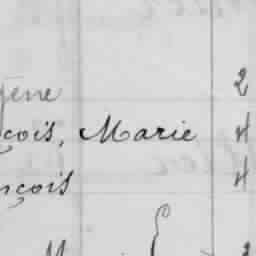 gène 2
çois, Marie 4
nçois 4